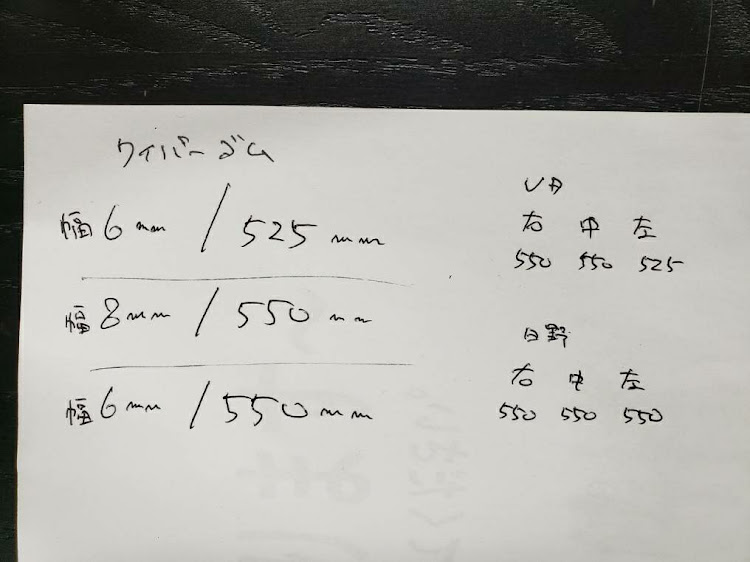 ワイパーゴム
幅6mm / 525mm
幅8mm / 550mm
幅6mm / 550mm
UD
右 中 左
550 550 525
日野
右 中 左
550 550 550